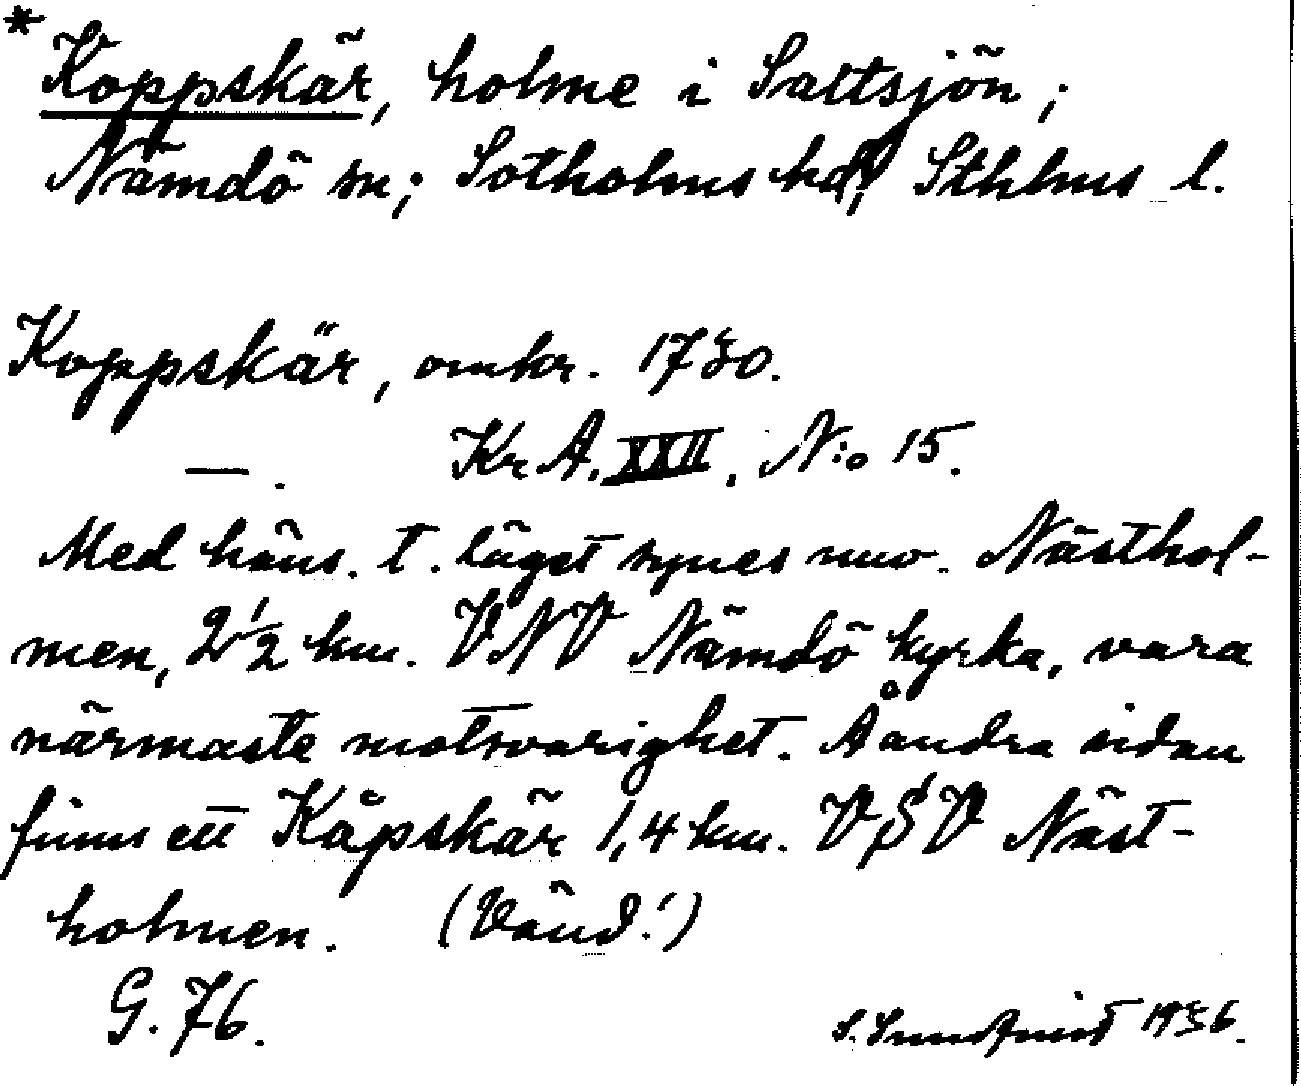 * Koppskär, holme i Saltsjön;
Nämdö sn; Sotholms hd; Sthlms l.
Koppskär, omkr. 1730.
—. Kr A. XXII. N:o 15.
Med häns. t. läget synes nuv. Nästhol-
men, 2 1/2 km. VNV Nämdö kyrka, vara
närmaste motsvarighet. Å andra sidan
finns ett Kåpskär 1,4 km. VSV Näst-
holmen. (Vänd!)
G. 76.
S. Sundqvist 1936.